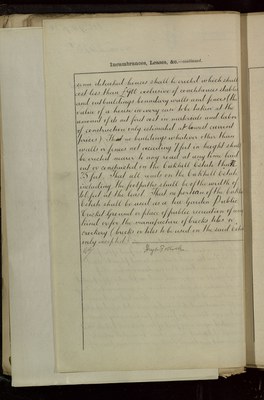 Incumbrances, Leases, &c.—continued.
detached houses shall be erected which shall
cost less than exclusive of conveniences stables
and outbuildings boundary walls and fences (the
value of a house in every case to be taken at the
amount of its net first cost in materials and labor
of construction only estimated at lowest current
prices) That no buildings whatever other than
walls or fences not exceeding 7 feet in height shall
be erected nearer to any road at any time laid
out or constructed on the Estate than
feet. That all roads on the Estate
including the footpaths shall be of the width of
feet at the least That no portion of the
Estate shall be used as a Tea Garden Public
Ground or place of public recreation of any
kind or for the manufacture of bricks tiles or
(bricks or tiles to be used on the said Estate
only excepted)